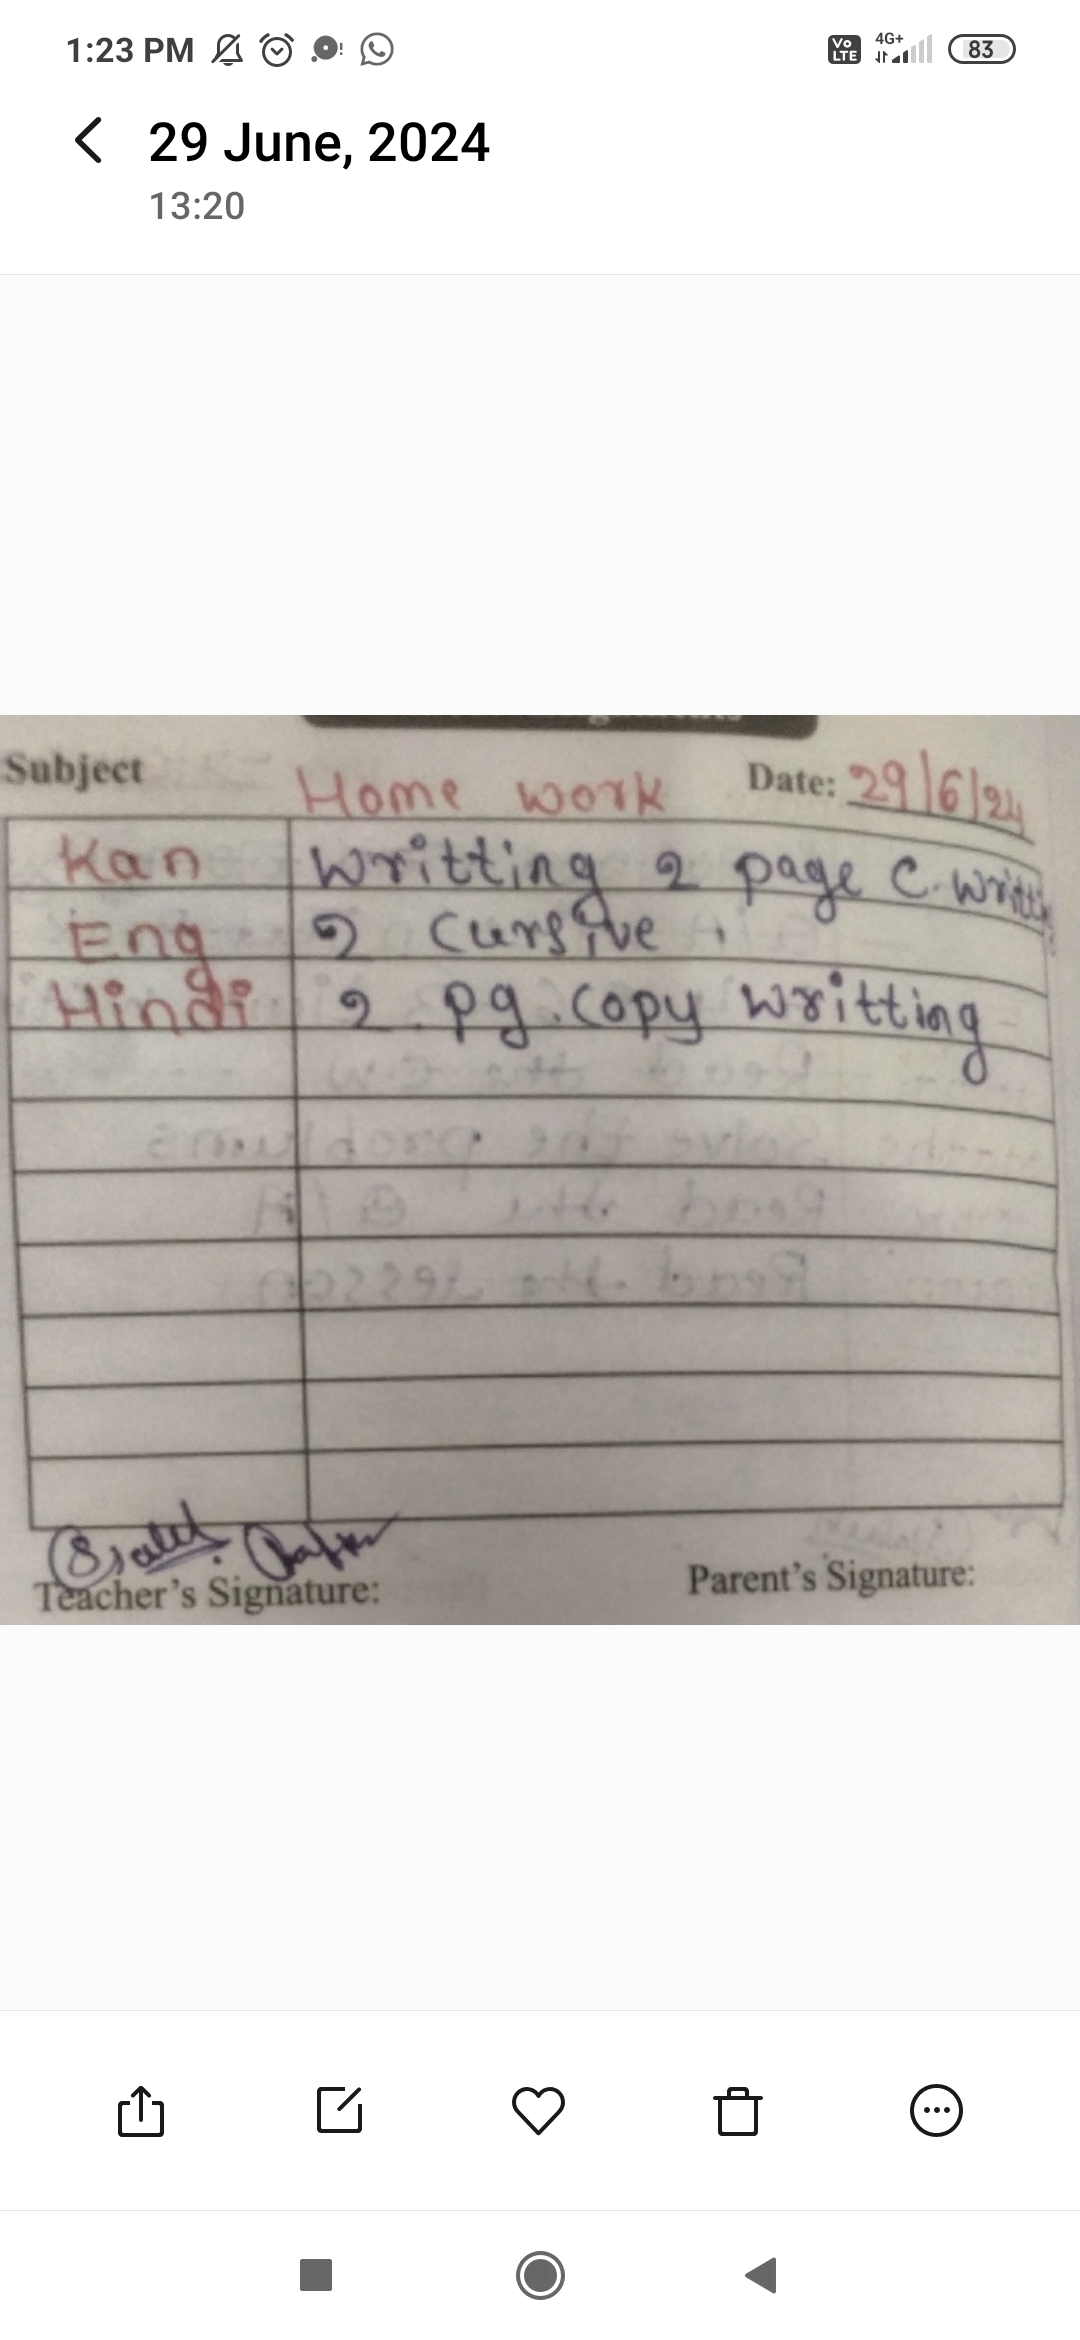 1:23 PM
Vo LTE 4G+ 83
29 June, 2024
13:20
Subject Home work Date: 29/6/24
Kan Writting 2 page C. writting
Eng 2 Cursive
Hindi 2 pg. copy writting
Teacher's Signature: Parent's Signature: